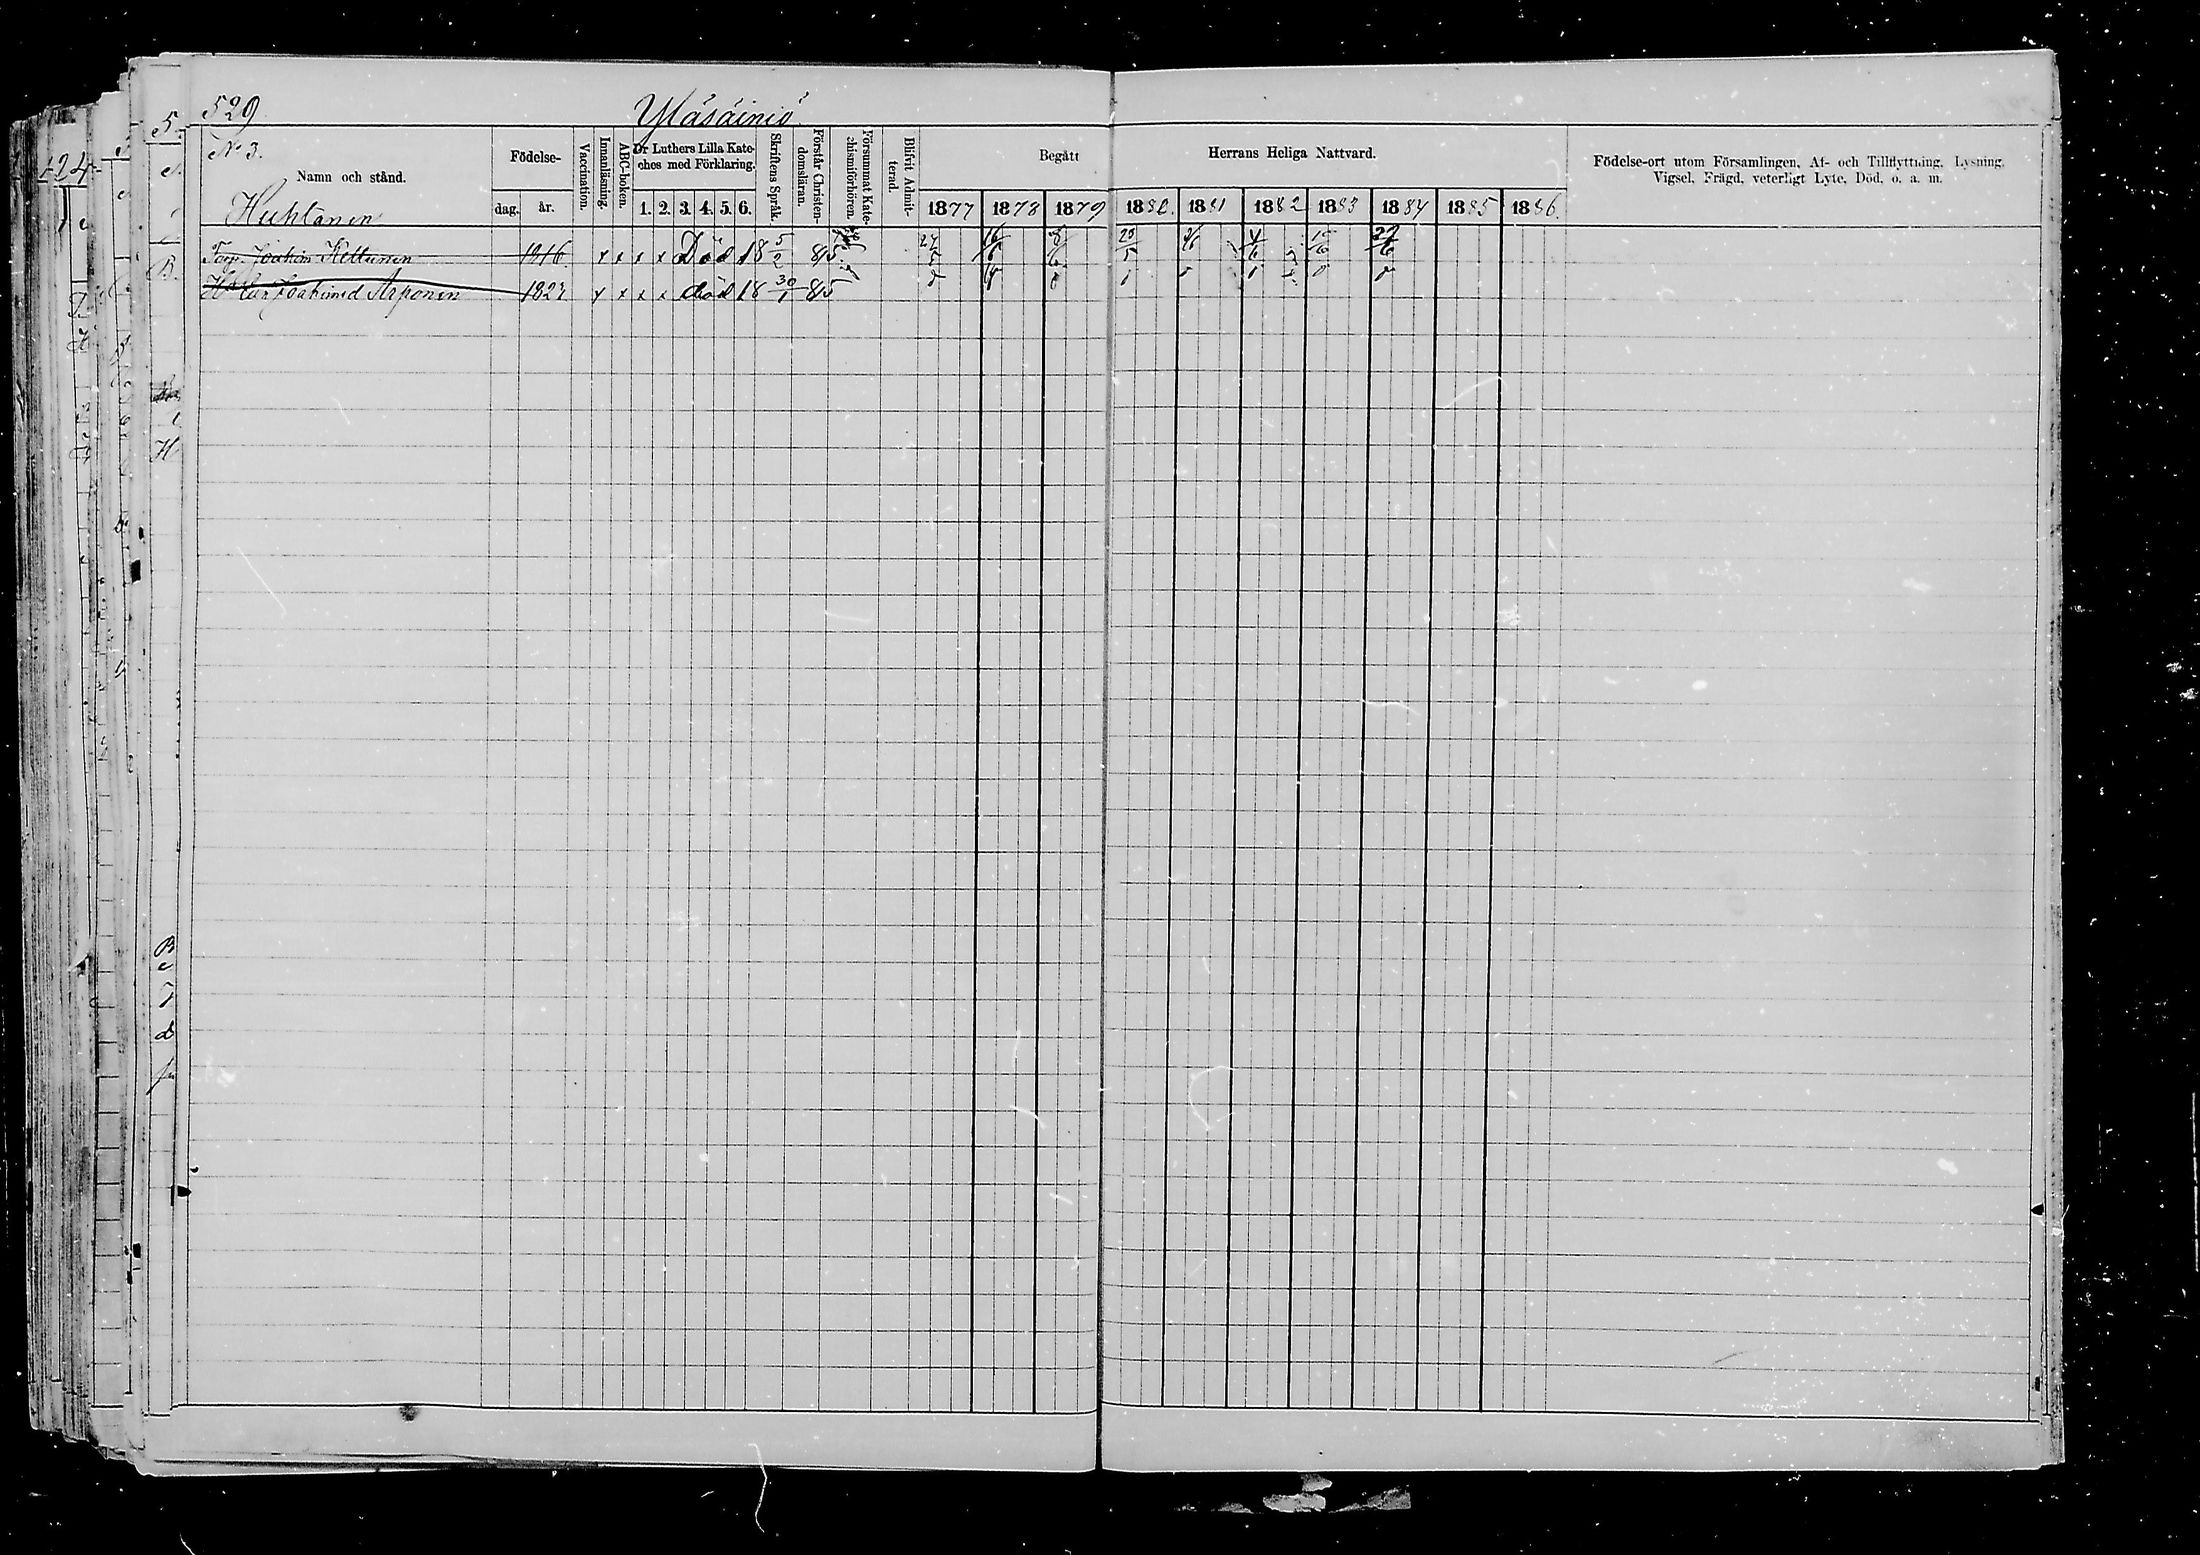 529
Yläsäiniö
N:o 3.
Namn och stånd.
Huhtanen
Födelse-
dag. år.
Vaccination.
Innanläsning.
ABC-boken.
Dr Luthers Lilla Kate-
ches med Förklaring.
1. 2. 3. 4. 5. 6.
Skriftens Språk.
Förstår Christen-
domsläran.
Försummat Kate-
chismiförhören.
Blifvit Admit-
terad.
Begått Herrans Heliga Nattvard.
1877 1878 1879 1880. 1881 1882 1883 1884 1885 1886.
Födelse-ort utom Församlingen, Af- och Tillflyttning, Lysning,
Vigsel, Frägd, veterligt Lyte, Död, o. a. m.
Torp. Joakim Kettunen 1816. x x x x Död 18 5/2 85 27/5 16/6 8/6 25/5 4/6 15/6 29/6
Joakimsd Arponen 1827 x x x x död 18 30/1 85